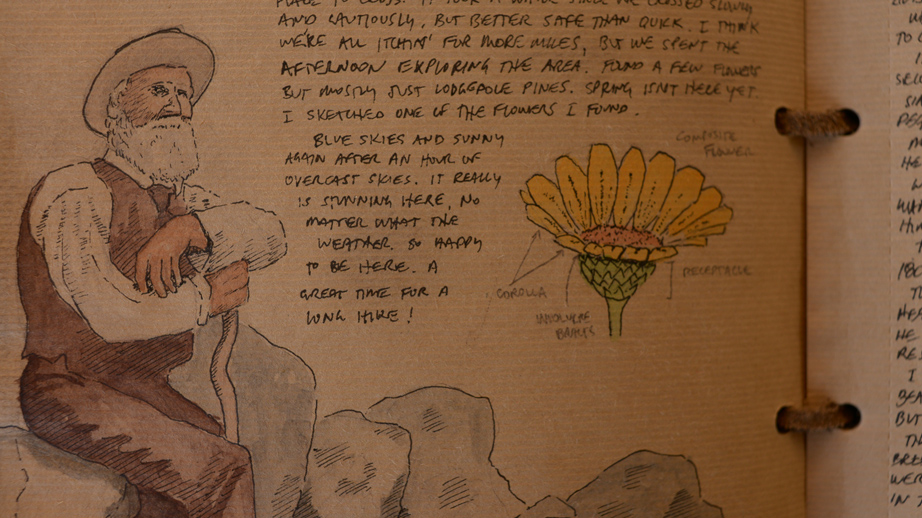 PLACE TO CROSS. IT TOOK A WHILE SINCE WE CROSSED SLOWLY
AND CAUTIOUSLY, BUT BETTER SAFE THAN QUICK. I THINK
WE'RE ALL ITCHIN' FOR MORE MILES, BUT WE SPENT THE
AFTERNOON EXPLORING THE AREA. FOUND A FEW FLOWERS
BUT MOSTLY JUST LODGEPOLE PINES. SPRING ISN'T HERE YET.
I SKETCHED ONE OF THE FLOWERS I FOUND.
BLUE SKIES AND SUNNY
AGAIN AFTER AN HOUR OF
OVERCAST SKIES. IT REALLY
IS STUNNING HERE, NO
MATTER WHAT THE
WEATHER. SO HAPPY
TO BE HERE. A
GREAT TIME FOR A
LONG HIKE!
COMPOSITE
FLOWER
COROLLA
RECEPTACLE
INVOLUCRE
BRACTS
TO
HE
I
BUT
WERE
IN